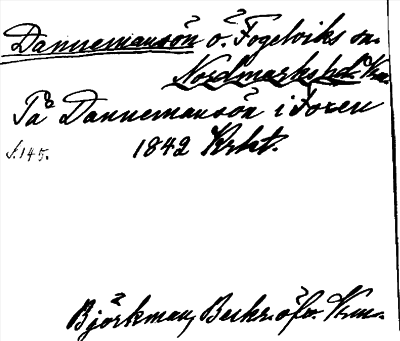 Dannemansön ö. Fogelviks sn.
Nordmarks hd. Vrm.
På Dannemansön i Foxen
1842 Krkt.
s. 145.
Björkman, Beskr. öfv. Vrm.